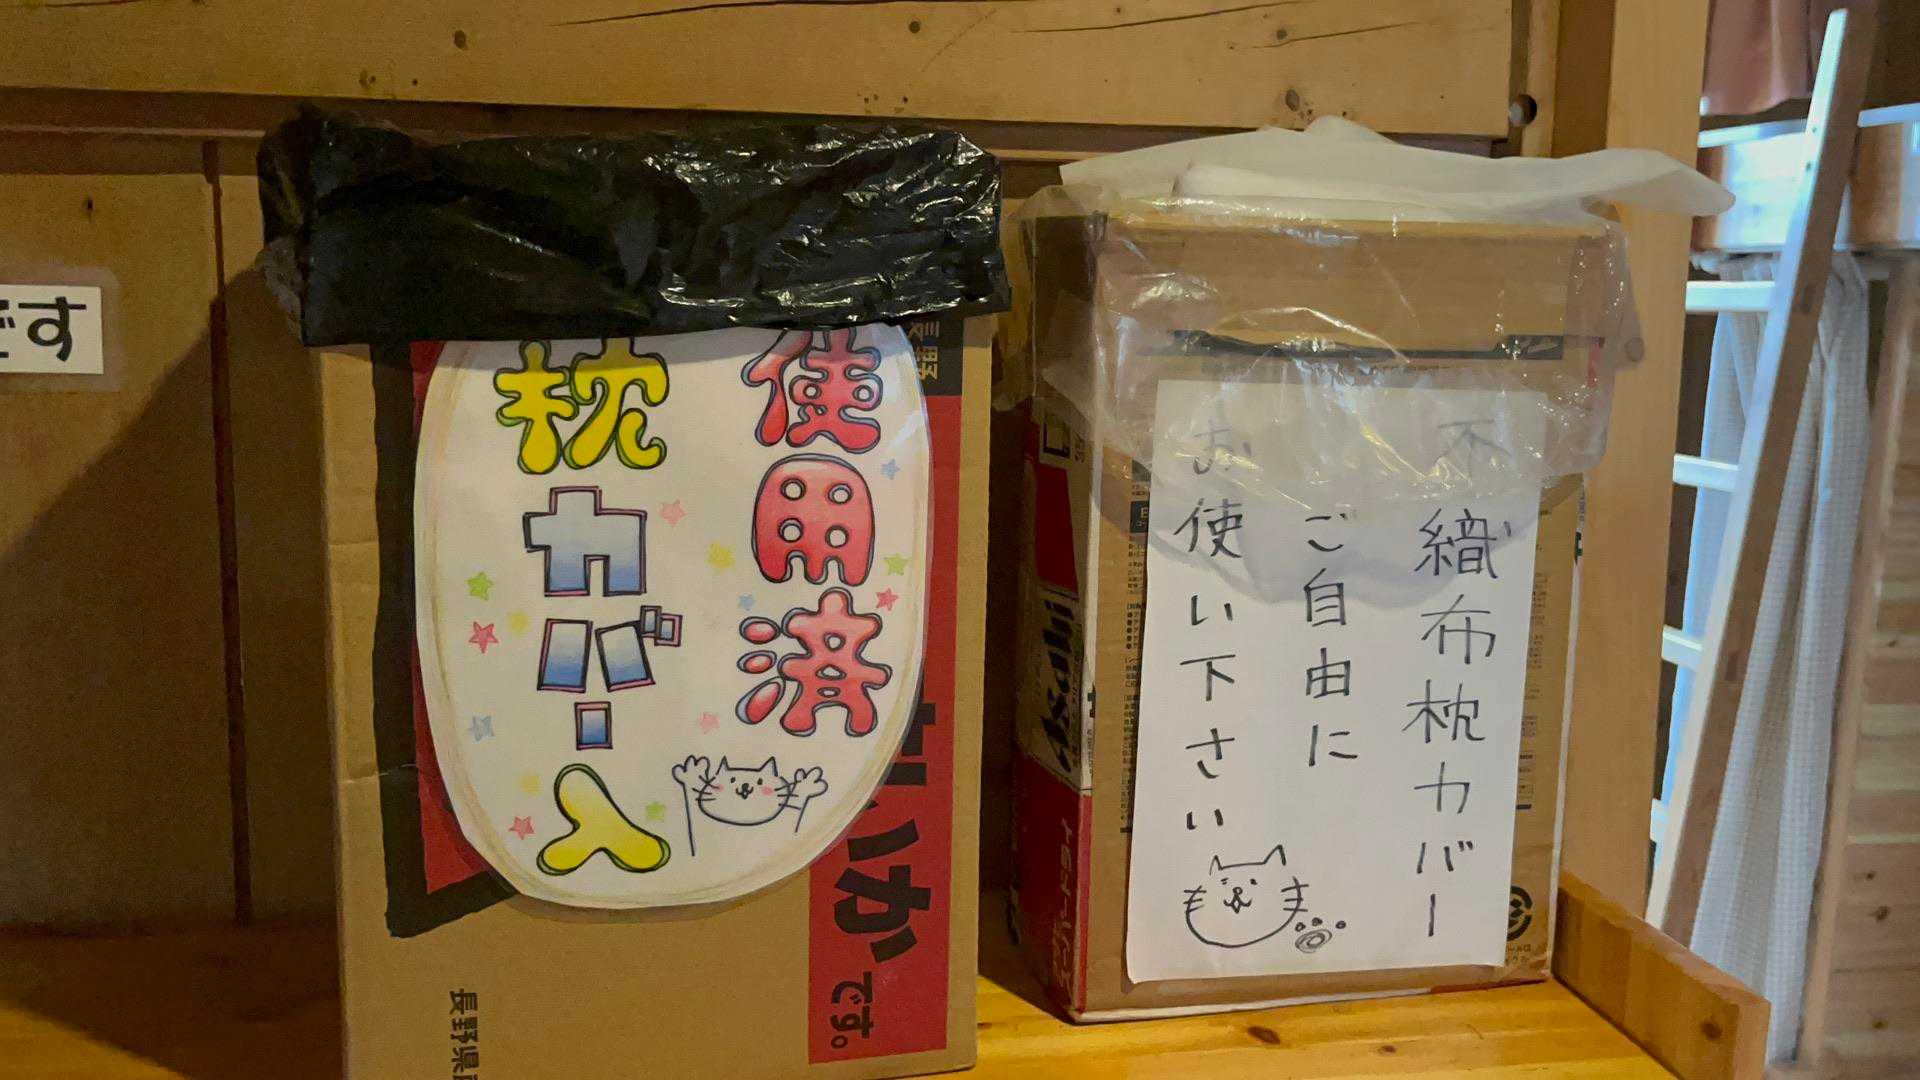 です
使用済
枕カバー入
長野
いか
です。
長野県
不織布枕カバー
ご自由に
お使い下さい
Asahi